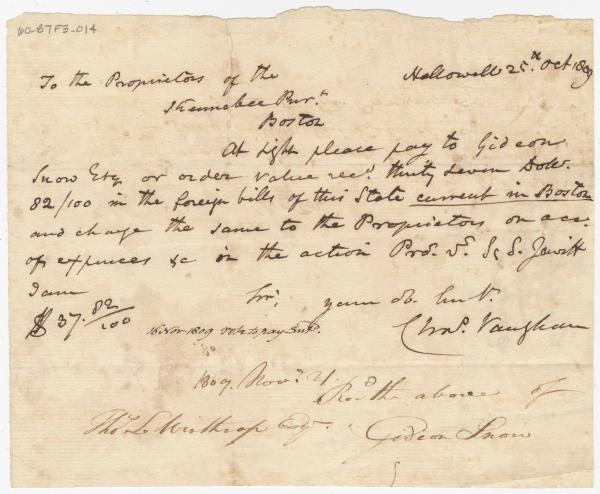 60-B7F3-014
Hallowell 25th Oct 1809
To the Proprietors of the
Kennebec Pur.
Boston
At sight please pay to Gideon
Snow Esq or order value recd. thirty seven Dolls.
82/100 in the foreign bills of this State current in Boston
and charge the same to the Proprietors on acc.
of expences &c in the action Pros. vs. S. Jewitt
I am
Sirs, your ob. Servt.
$ 37. 82/100
Chas. Vaughan
16 Nov 1809
1809. Nov. 21. Recd the above of
Thos L Winthrop Esqr.
Gideon Snow